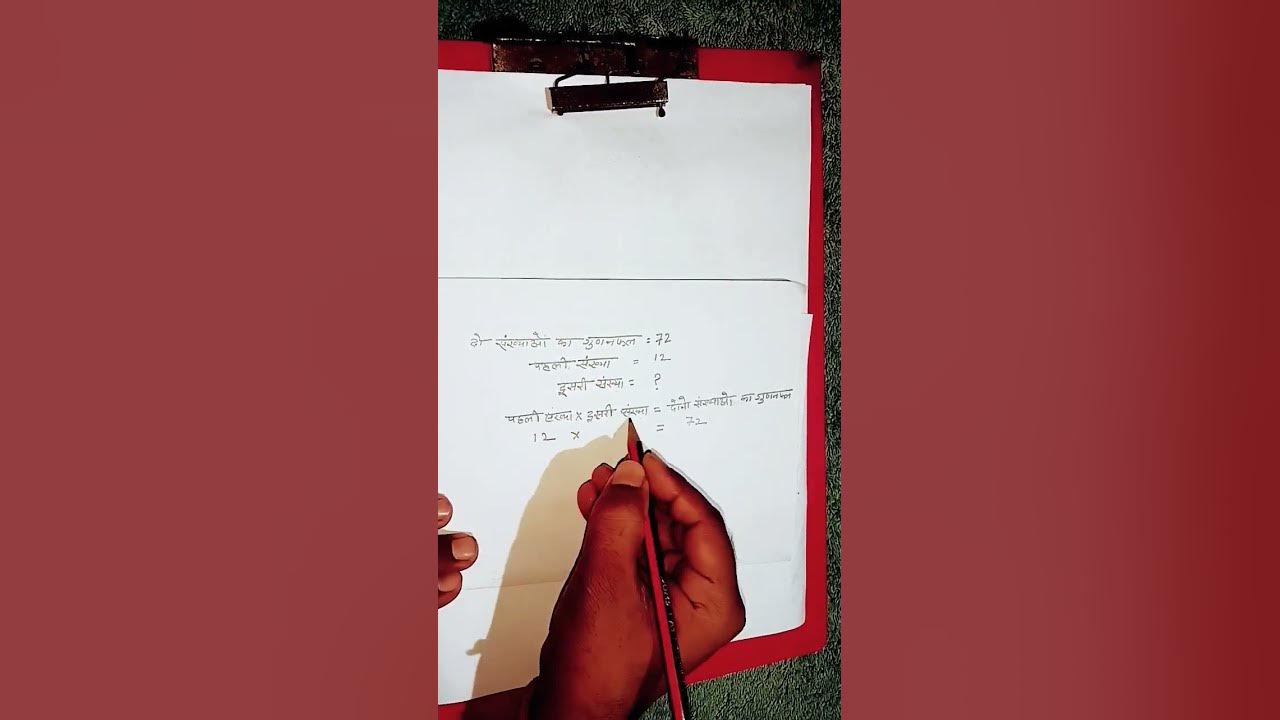 दो संख्याओं का गुणनफल = 72
पहली संख्या = 12
दूसरी संख्या = ?
पहली संख्या x दूसरी संख्या = दोनों संख्याओं का गुणनफल
12 x = 72